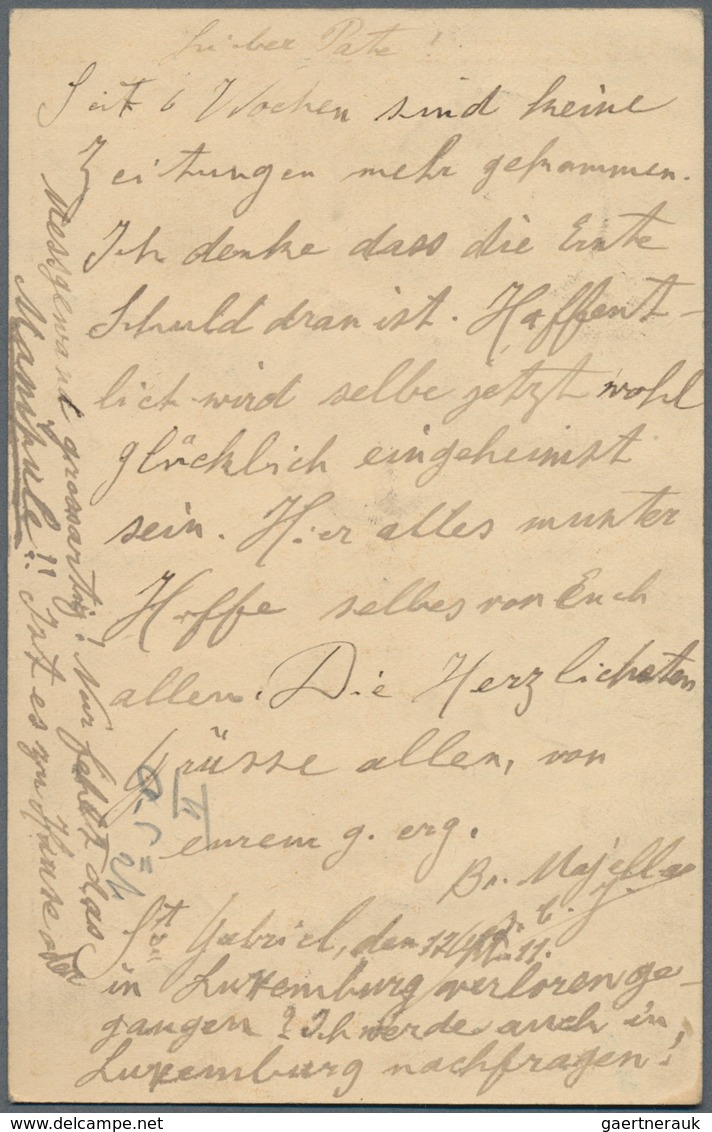 Lieber Pate!
Seit 6 Wochen sind keine
Zeitungen mehr gekommen.
Ich denke dass die Ernte
Schuld dran ist. Hoffent-
lich wird selbe jetzt wohl
glücklich eingeheimst
sein. Hier alles munter
Hoffe selbes von Euch
allen. Die Herzlichsten
Grüsse allen, von
eurem g. erg.
Br. Majella
St Gabriel, den 11.
Messgewand grossartig! Nur fehlt das
Manipule!! Ist es zu Hause oder
in Luxemburg verloren ge-
gangen? Ich werde auch in
Luxemburg nachfragen!
gaertnerauk